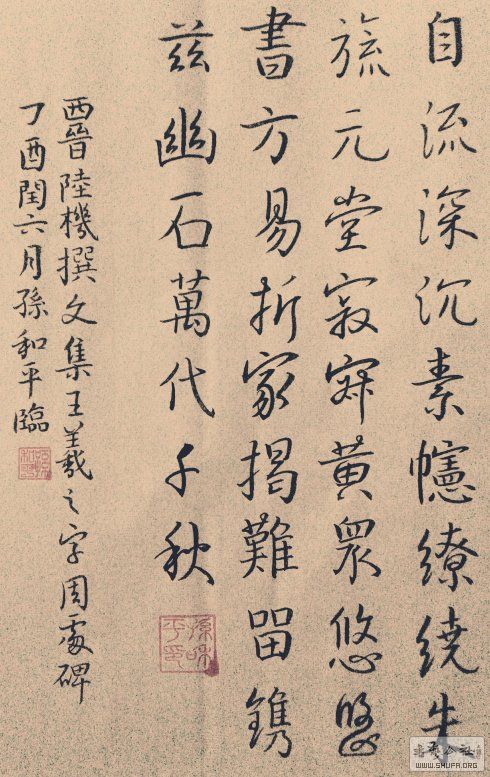 自流深沉素幰繚繞朱
旒元堂寂黃眾悠悠
書方易折家揭難留鐫
茲幽石萬代千秋
孫和平印
西晉陸機撰文集王羲之字周處碑
丁酉閏六月孫和平臨
WWW.SHUFA.ORG